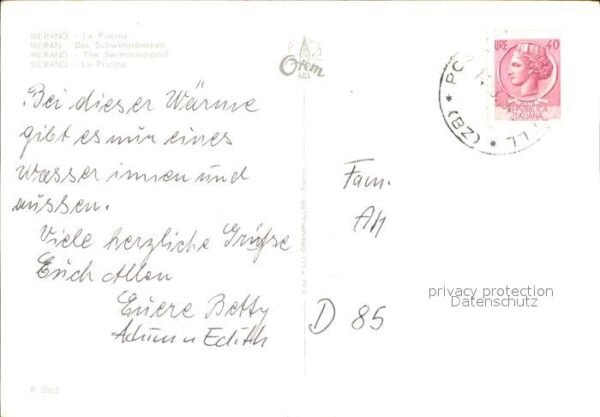 MERANO - La Piscina
MERAN - Das Schwimmbecken
MERANO - The Swimming-pool
MERANO - La Piscina
Orem
LIRE 40
REPUBBLICA
ITALIANA
(BZ)
Bei dieser Wärme
gibt es nur eines
wasser innen und
aussen.
Viele herzliche Grüsse
Euch Allen
Euere Betty
Edith
Fam.
D 85
privacy protection
Datenschutz